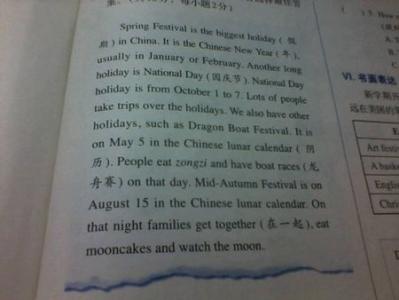 每小题2分)
Spring Festival is the biggest holiday ( 假
期 ) in China. It is the Chinese New Year ( 年 ),
usually in January or February. Another long
holiday is National Day (国庆节). National Day
holiday is from October 1 to 7. Lots of people
take trips over the holidays. We also have other
holidays, such as Dragon Boat Festival. It is
on May 5 in the Chinese lunar calendar ( 阴
历 ). People eat zongzi and have boat races (龙
舟赛 ) on that day. Mid-Autumn Festival is on
August 15 in the Chinese lunar calendar. On
that night families get together ( 在一起 ), eat
mooncakes and watch the moon.
VI. 书面表达
新学期开
远在美国的
Art festi
A bask
Englis
Chri